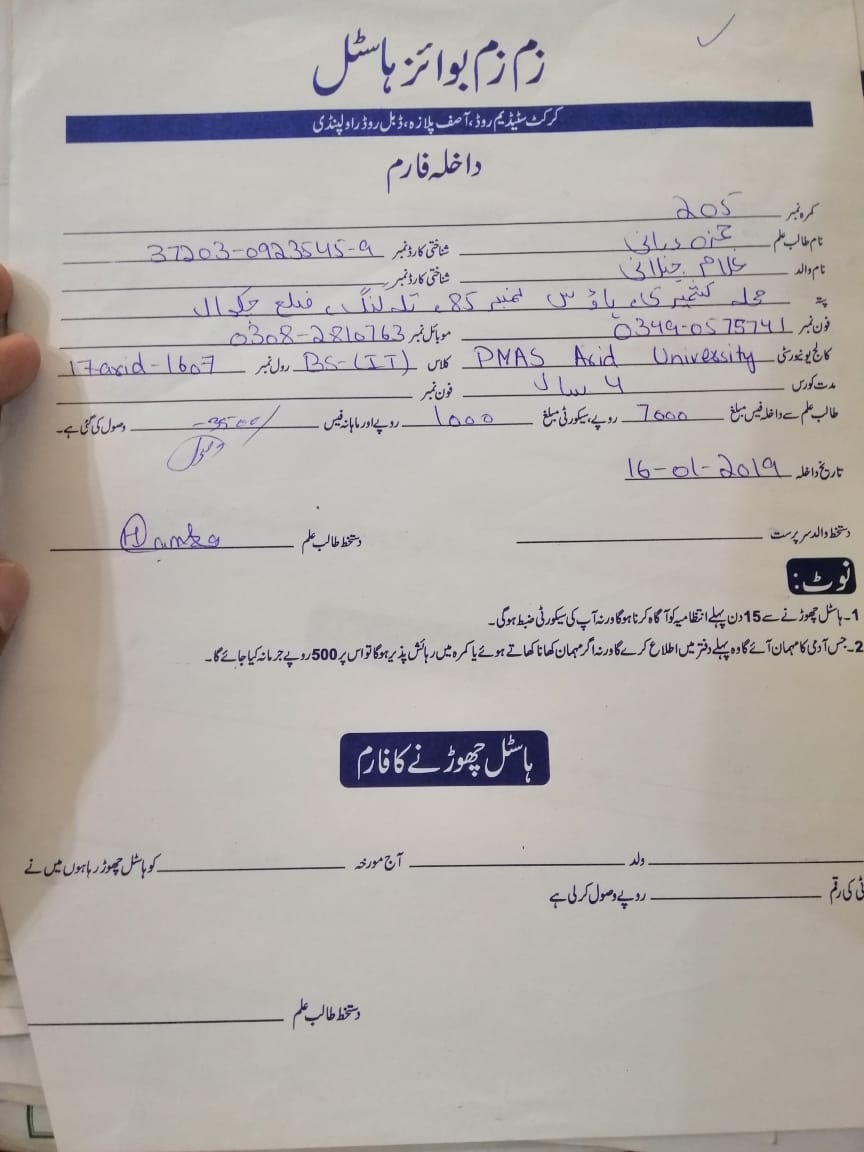 زم زم بوائز ہاسٹل
کرکٹ سٹیڈیم روڈ، آصف پلازہ، ڈبل روڈ راولپنڈی
داخلہ فارم
کمرہ نمبر 205
نام طالب علم حمزہ ربانی شناختی کارڈ نمبر 37203-0923545-9
نام والد غلام جیلانی شناختی کارڈ نمبر
پتہ محلہ کشمیری، ہاؤس نمبر 85، تلہ گنگ، ضلع چکوال
فون نمبر 0349-0575741 موبائل نمبر 0308-2810763
کالج یونیورسٹی PMAS Arid University کلاس BS-(IT) رول نمبر 17-arid-1607
مدت کورس 4 سال فون نمبر
طالب علم سے داخلہ فیس مبلغ 7000 روپے، سیکورٹی مبلغ 1000 روپے اور ماہانہ فیس 3500/ وصول کی گئی ہے۔
تاریخ داخلہ 16-01-2019
دستخط والد سرپرست دستخط طالب علم Hamza
نوٹ:
1۔ ہاسٹل چھوڑنے سے 15 دن پہلے انتظامیہ کو آگاہ کرنا ہوگا ورنہ آپ کی سیکورٹی ضبط ہوگی۔
2۔ جس آدمی کا مہمان آئے گا وہ پہلے دفتر میں اطلاع کرے گا ورنہ اگر مہمان کھانا کھاتے ہوئے یا کمرہ میں رہائش پذیر ہوگا تو اس پر 500 روپے جرمانہ کیا جائے گا۔
ہاسٹل چھوڑنے کا فارم
ولد آج مورخہ کو ہاسٹل چھوڑ رہا ہوں میں نے
ٹی کی رقم روپے وصول کر لی ہے
دستخط طالب علم